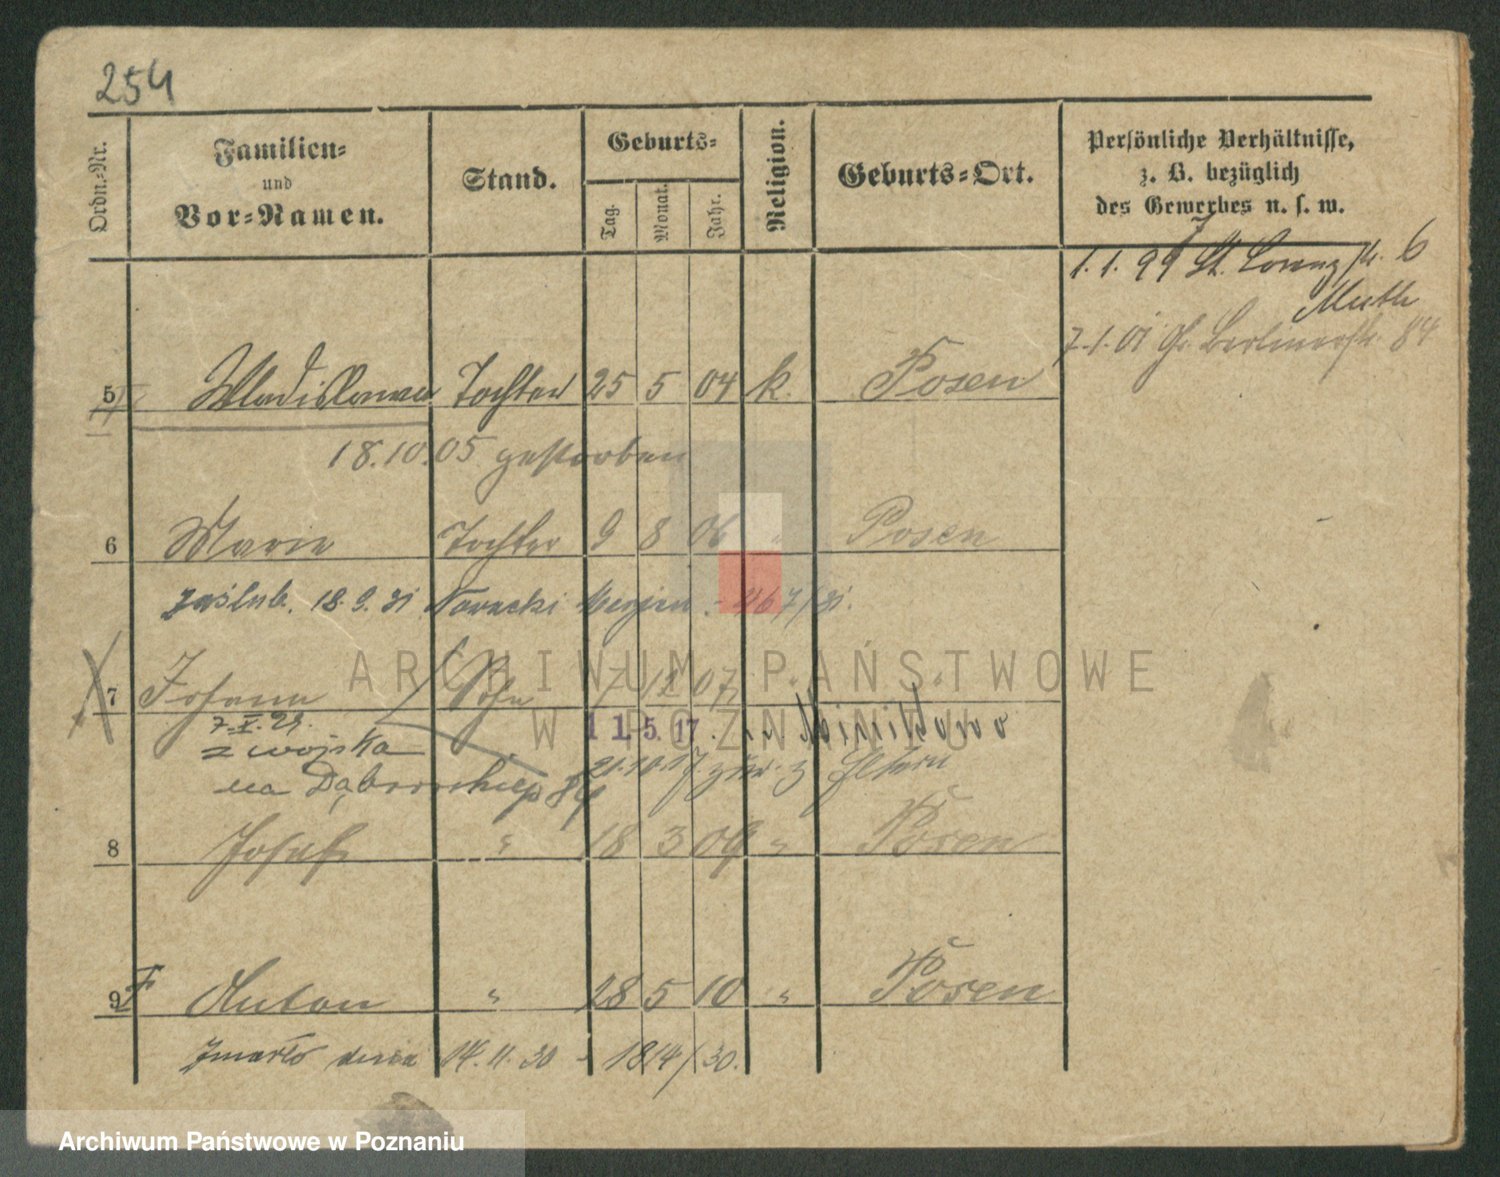 254
Ordn.-Nr.
Familien-
und
Vor-Namen.
Stand.
Geburts-
Tag.
Monat.
Jahr.
Religion.
Geburts-Ort.
Persönliche Verhältnisse,
z. B. bezüglich
des Gewerbes u. s. w.
1.1.99 St. Lorenzstr. 6
7.1.01 Gr. Berlinerstr. 84
5 Wladislawa Tochter 25 5 04 k. Posen
18.10.05 gestorben
6 Marie Tochter 9 8 06 " Posen
zaślub. 18.9.31 Nowacki - 467/31.
7 Johann Sohn 7 12 07 "
7.X.29. 11.5.17.
z wojska
21.10.17 zur. z Eltern
na Dąbrowskiego 84
8 Josef " 18 3 09 " Posen
9 Anton " 28 5 10 " Posen
Zmarł dnia 14.11.30 - 1814/30.
ARCHIWUM PAŃSTWOWE
W POZNANIU
Archiwum Państwowe w Poznaniu